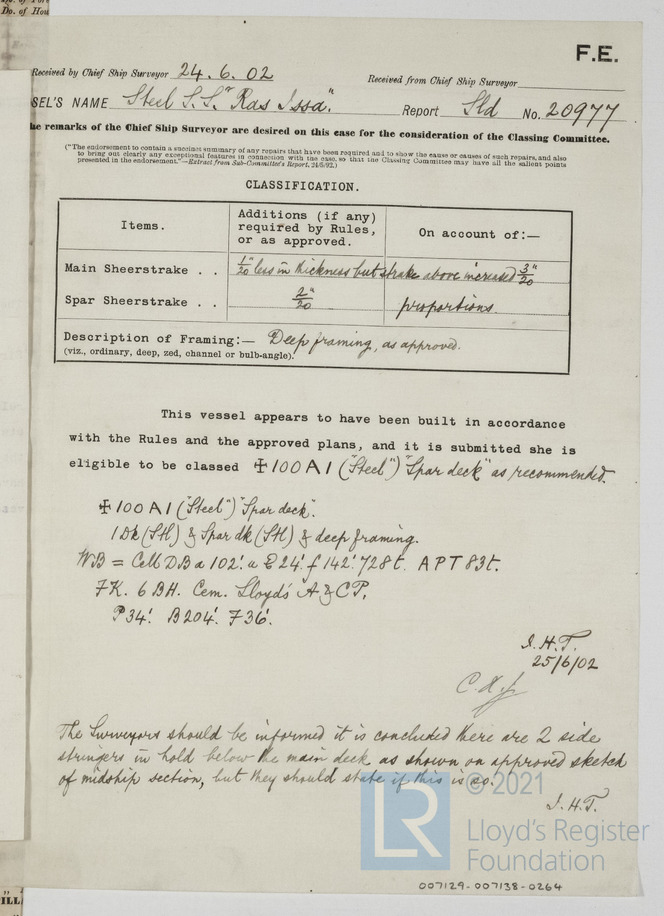 Do. of Hou
F.E.
Received by Chief Ship Surveyor 24.6.02
Received from Chief Ship Surveyor
SEL'S NAME Steel S.S. "Ras Issa" Report Sld No. 20977
he remarks of the Chief Ship Surveyor are desired on this case for the consideration of the Classing Committee.
("The endorsement to contain a succinct summary of any repairs that have been required and to show the cause or causes of such repairs, and also
to bring out clearly any exceptional features in connection with the case, so that the Classing Committee may have all the salient points
presented in the endorsement."—Extract from Sub-Committee's Report,
CLASSIFICATION.
Items.
Additions (if any)
required by Rules,
or as approved.
On account of:—
Main Sheerstrake . . 1/20" less in thickness but strake above increased 3/20"
Spar Sheerstrake . . 2/20" proportions.
Description of Framing:— Deep framing, as approved.
(viz., ordinary, deep, zed, channel or bulb-angle).
This vessel appears to have been built in accordance
with the Rules and the approved plans, and it is submitted she is
eligible to be classed ✠ 100 A1 ("Steel") "Spar deck" as recommended.
✠ 100 A1 ("Steel") "Spar deck".
1 Dk (Stl) & Spar dk (Stl) & deep framing.
WB = Cell DB a 102' u E 24' f 142' 728t. APT 83t.
FK. 6 BH. Cem. Lloyd's A & CP.
P 34' B 204' F 36'.
J.H.T.
25/6/02
The Surveyors should be informed it is concluded there are 2 side
stringers in hold below the main deck as shown on approved sketch
of midship section, but they should state if this is so.
J.H.T.
© 2021
LR
Lloyd's Register
Foundation
007129-007138-0264
ILL